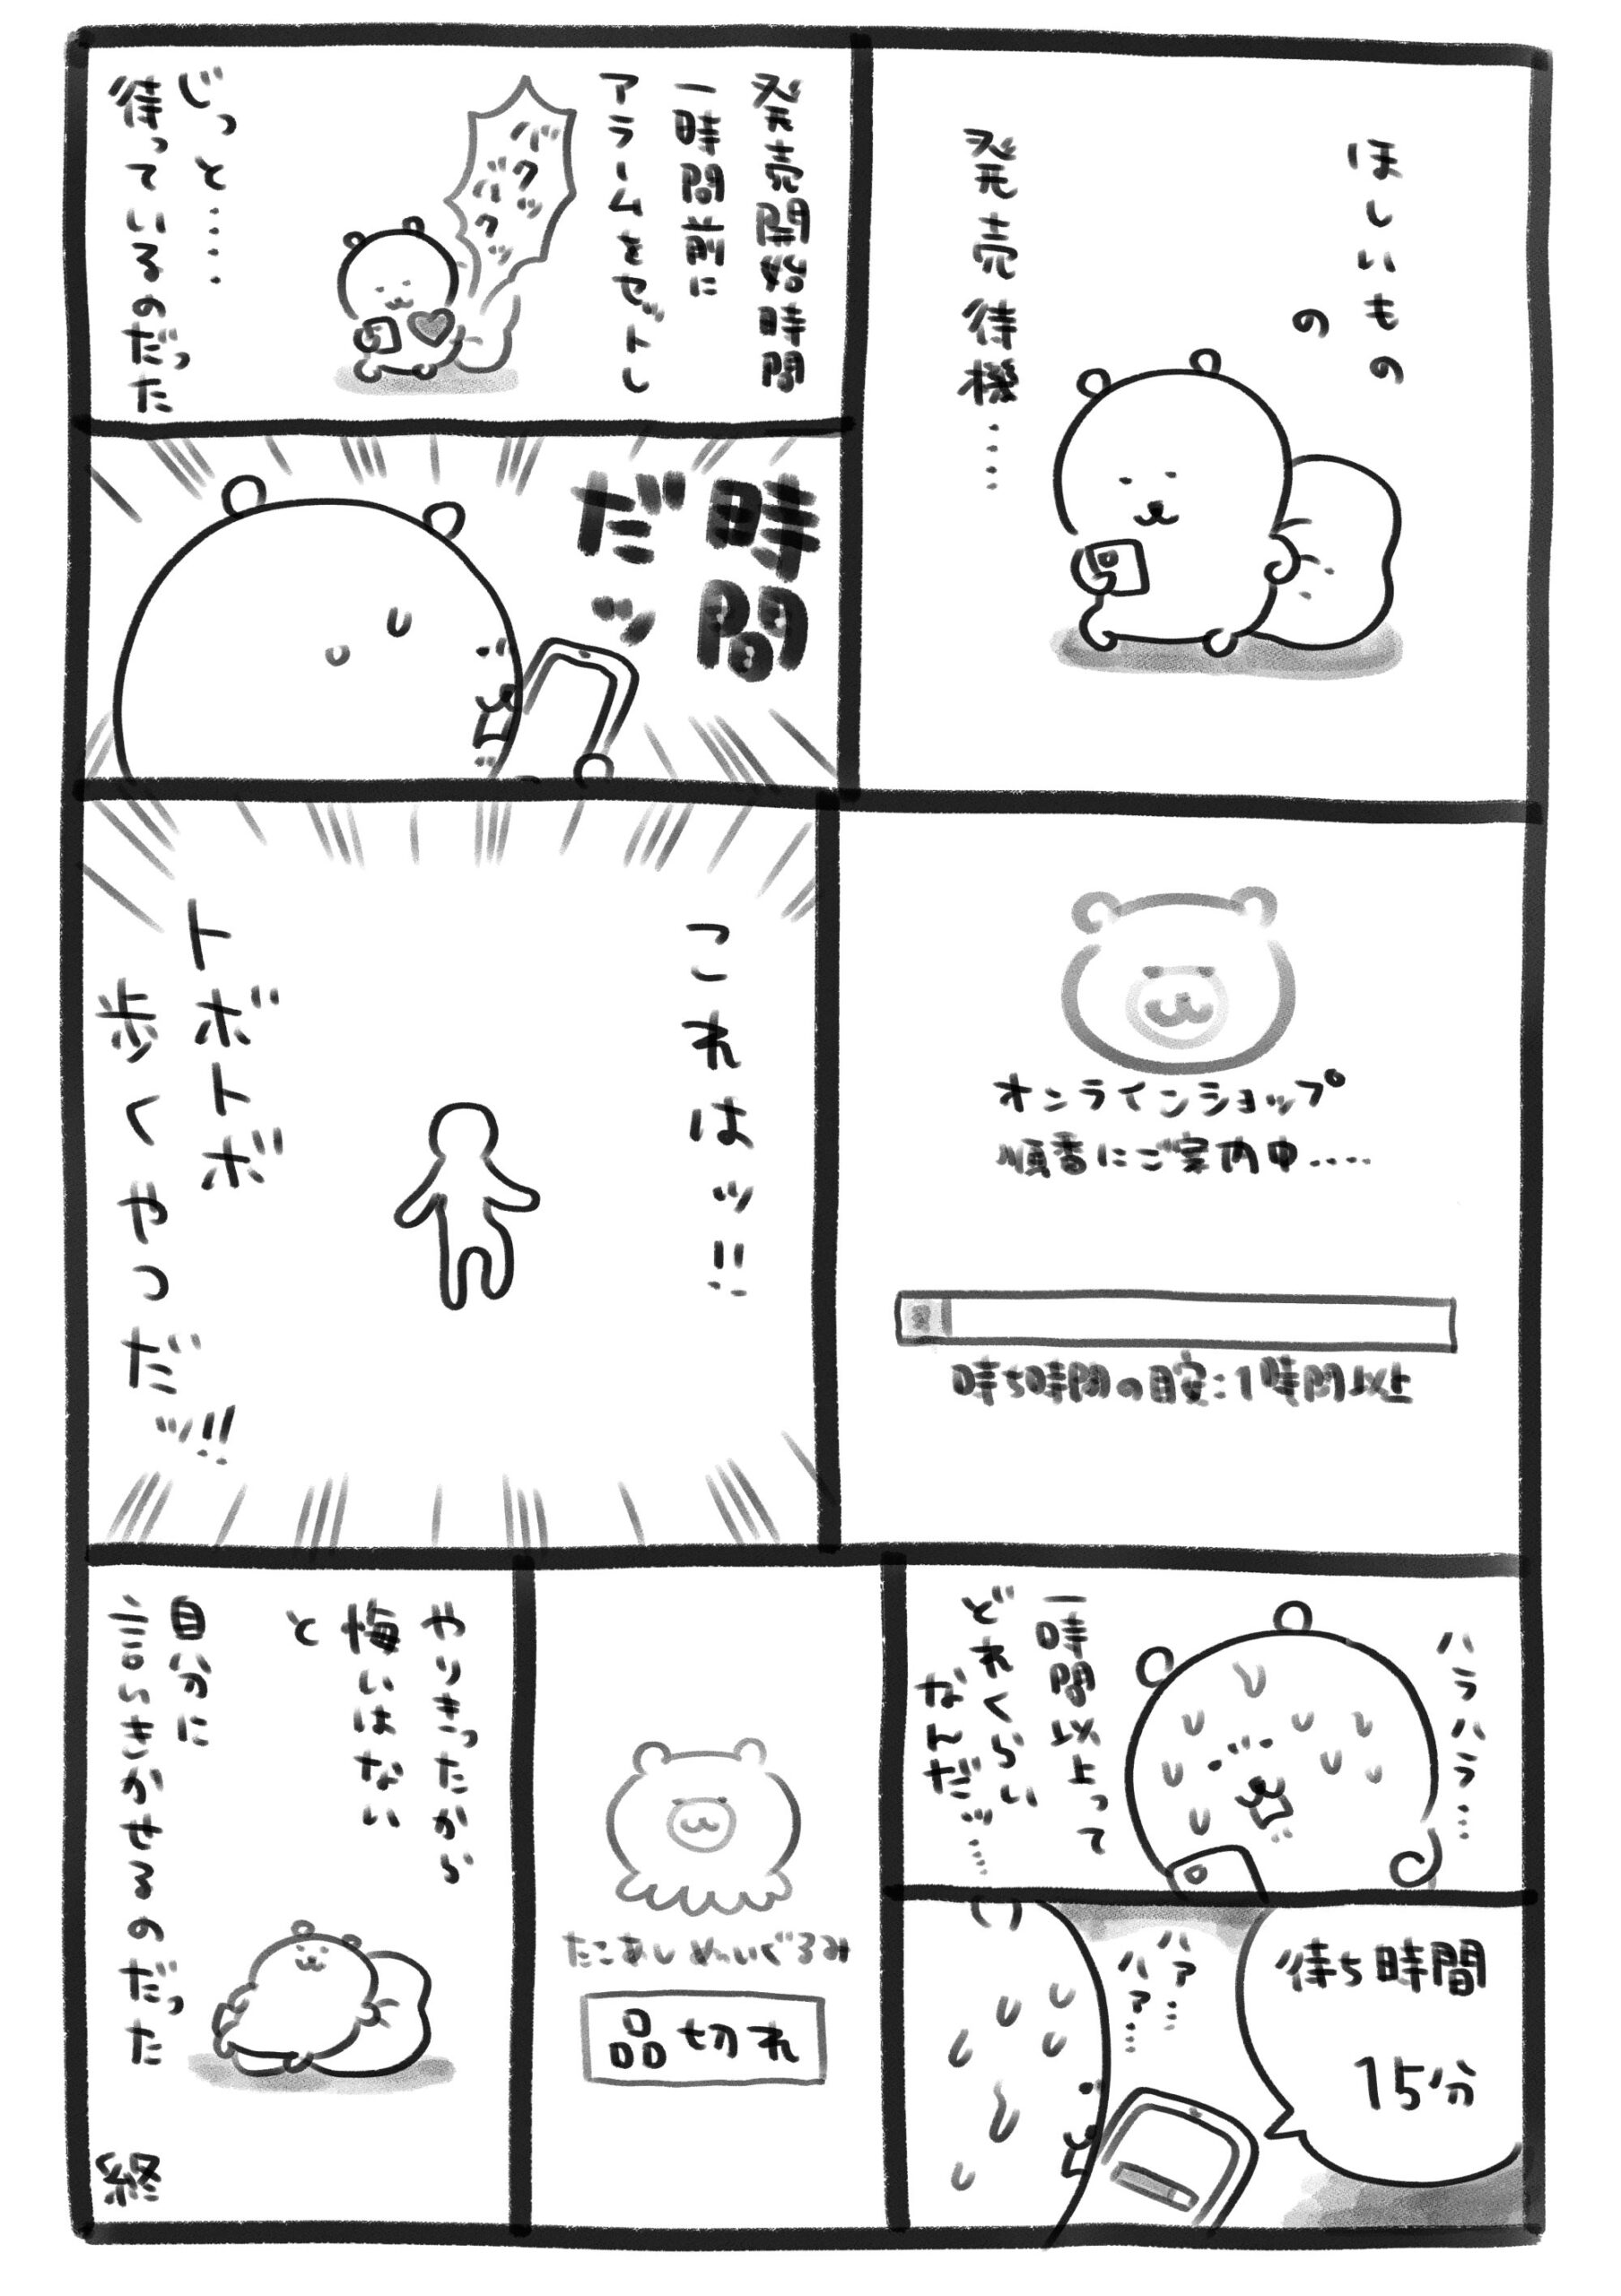 ほしいもの
の
発売待機……
発売開始時間
一時間前に
アラームをセットし
バクッ
バクッ
じっと……
待っているのだった
時間
だッ
オンラインショップ
順番にご案内中……
待ち時間の目安:1時間以上
これはッ!!
トボトボ
歩くやつだッ!!
ハラハラ…
一時間以上って
どれくらい
なんだッ……
待ち時間
15分
ハァ…
ハァ…
たこあしぬいぐるみ
品切れ
やりきったから
悔いはない
と
自分に
言いきかせるのだった
終